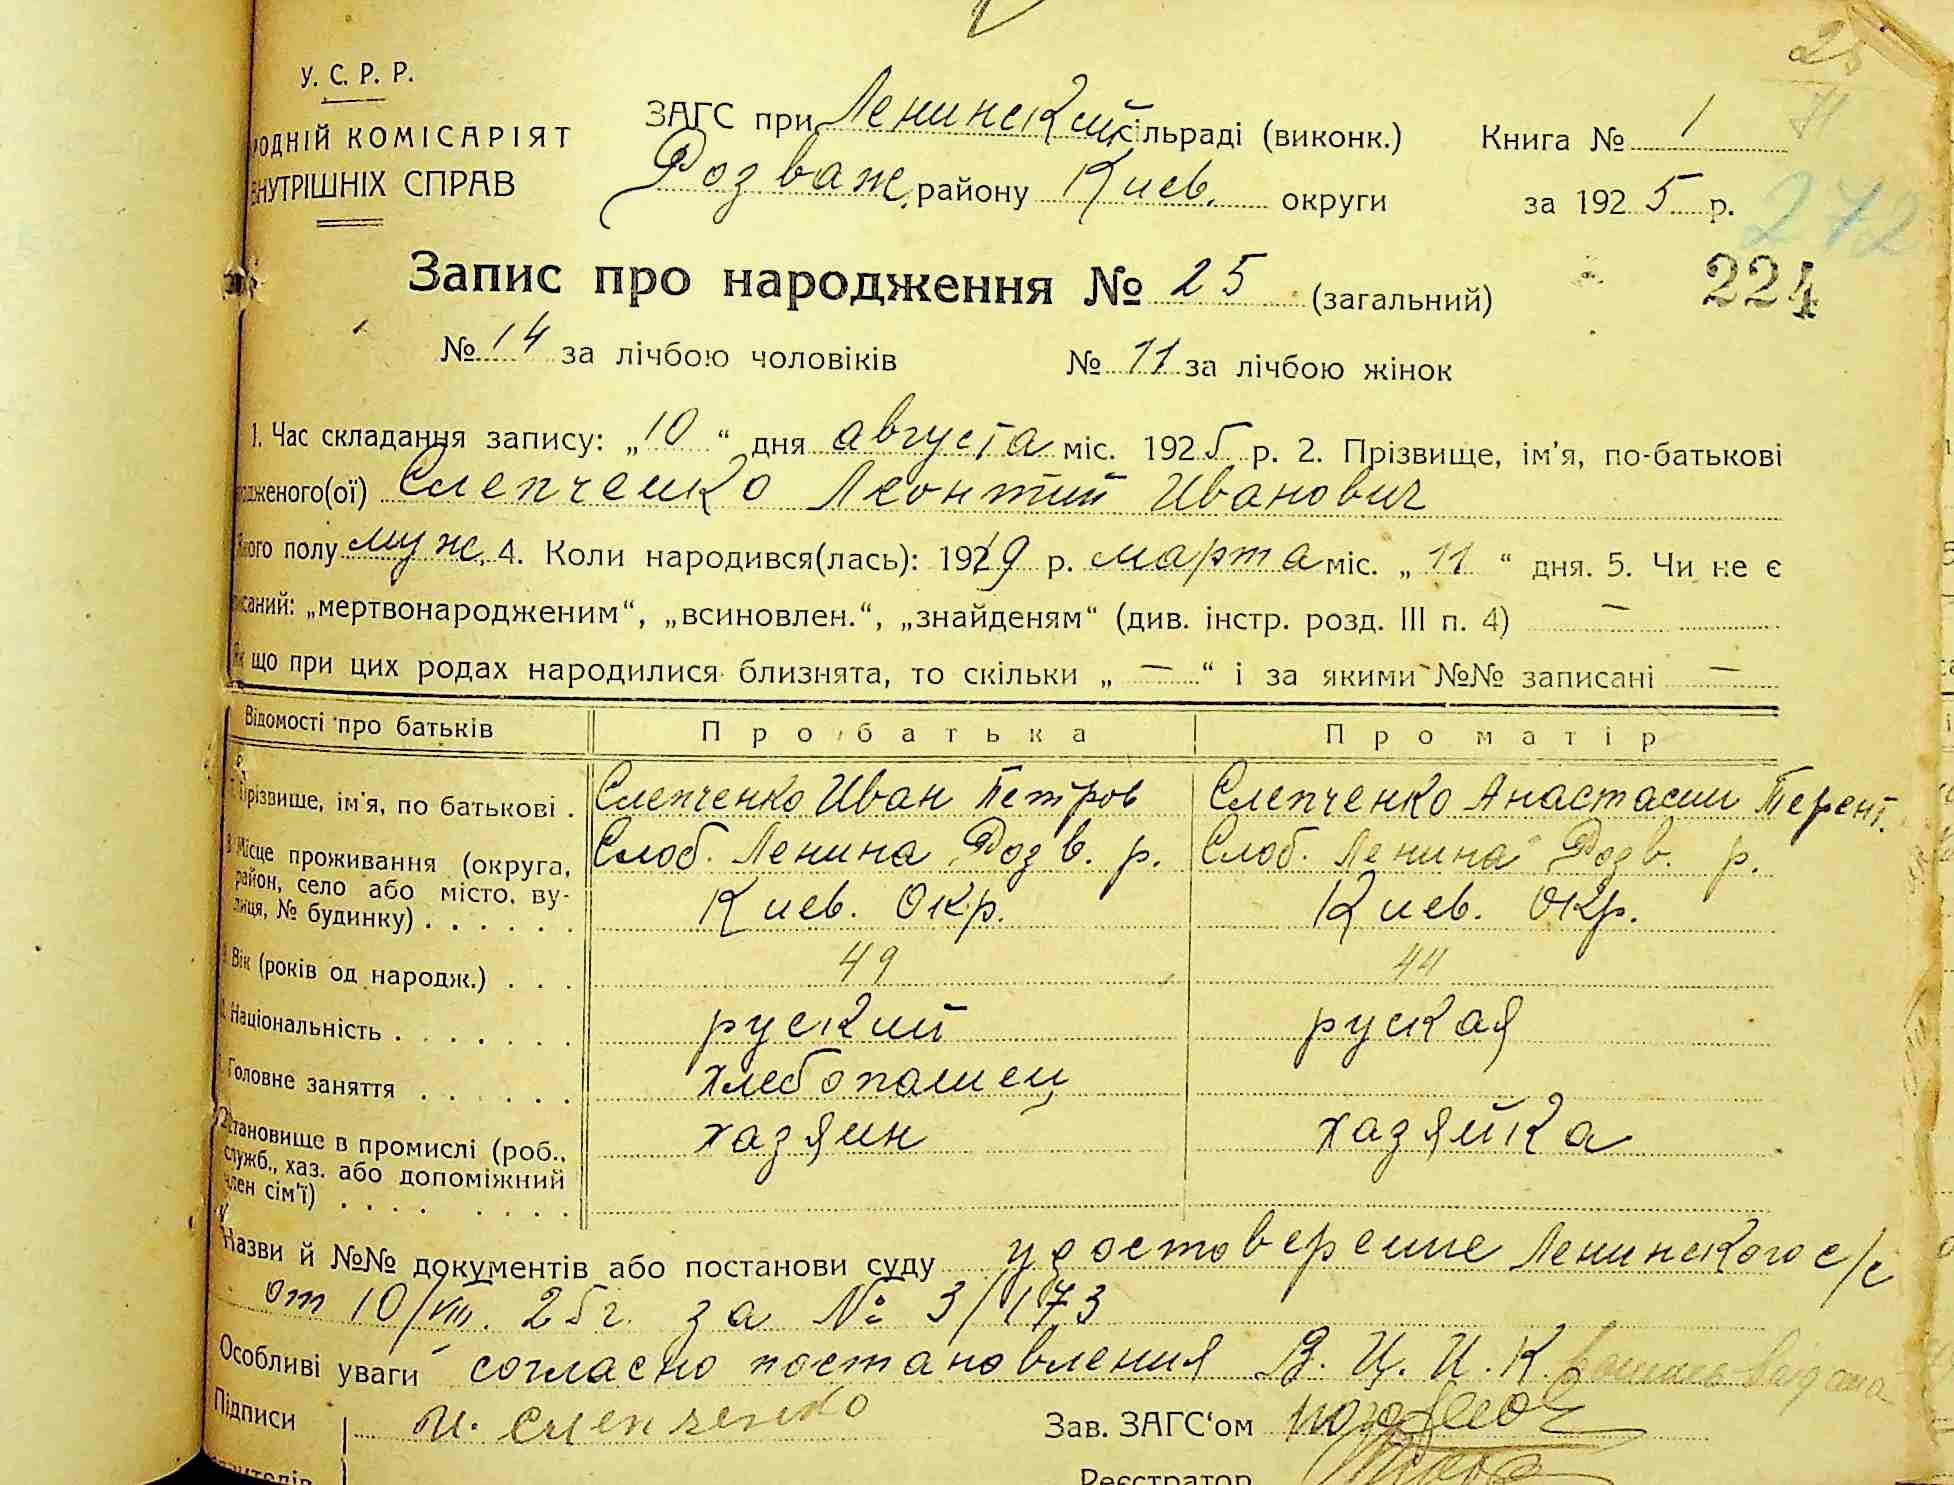 25
У. С. Р. Р.
РОДНІЙ КОМІСАРІЯТ
ВНУТРІШНІХ СПРАВ
ЗАГС при Ленинский сільраді (виконк.) Книга № 1
Розваж. району Киев. округи за 1925 р.
272
224
Запис про народження № 25 (загальний)
№ 14 за лічбою чоловіків № 11 за лічбою жінок
1. Час складання запису: „10“ дня августа міс. 1925 р. 2. Прізвище, ім'я, по-батькові
родженого(ої) Слепченко Леонтий Иванович
ного полу муж. 4. Коли народився(лась): 1919 р. марта міс. „11“ дня. 5. Чи не є
писаний: „мертвонародженим“, „всиновлен.“, „знайденям“ (див. інстр. розд. III п. 4) —
Як що при цих родах народилися близнята, то скільки „—“ і за якими №№ записані —
Відомості про батьків Про батька Про матір
7. Прізвише, ім'я, по батькові . Слепченко Иван Петров Слепченко Анастасии Терент.
8. Місце проживання (округа, Слоб. Ленина Розв. р. Слоб. Ленина Розв. р.
район, село або місто, ву-
лиця, № будинку) . . . . . . Киев. Окр. Киев. Окр.
Вік (років од народж.) . . . 49 44
Національність . . . . . . . руский руская
Головне заняття . . . . . . хлебопашец
Становище в промислі (роб., хазяин хазяйка
служб., хаз. або допоміжний
член сім'ї) . . . . . . . .
Назви й №№ документів або постанови суду удостоверение Ленинского с/с
от 10/VIII. 25г. за № 3/173
Особливі уваги согласно постановления В. Ц. И. К
Підписи И. Слепченко Зав. ЗАГС'ом
Реєстратор